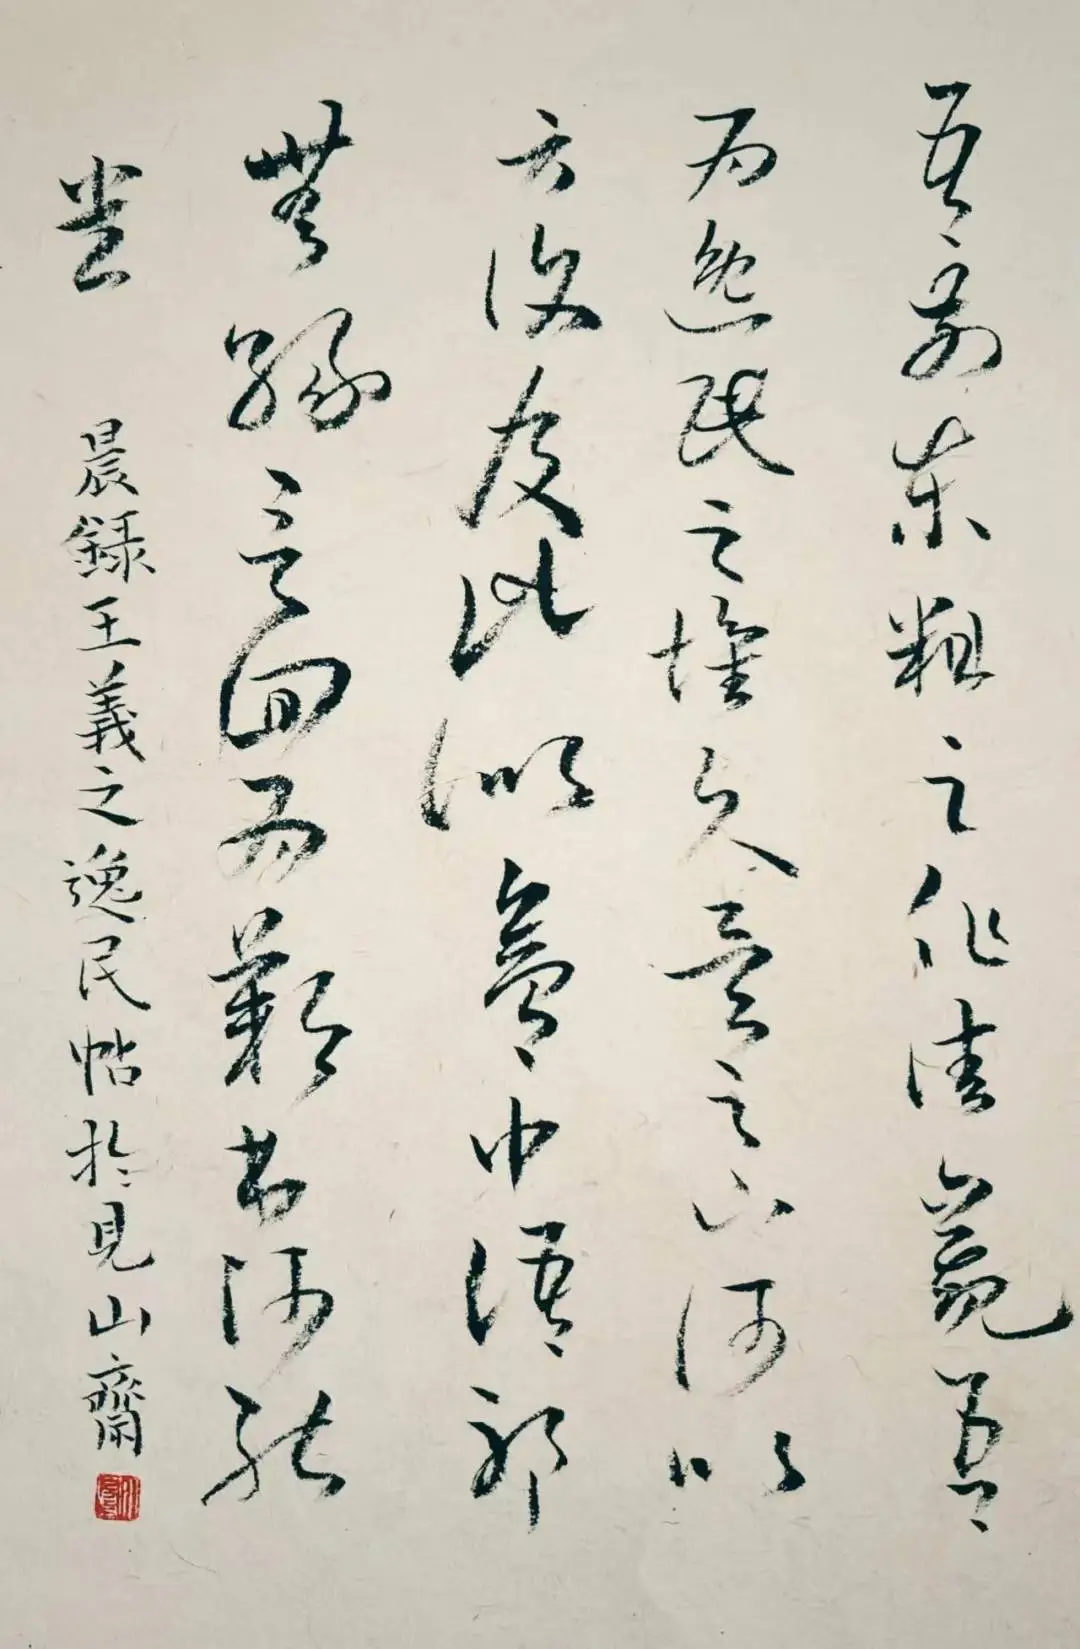 吾前東粗足作佳觀吾
為逸民之懷久矣足下何以
方復及此似夢中語耶
無緣言面為歎書何能
悉
晨録王義之逸民帖於見山齋